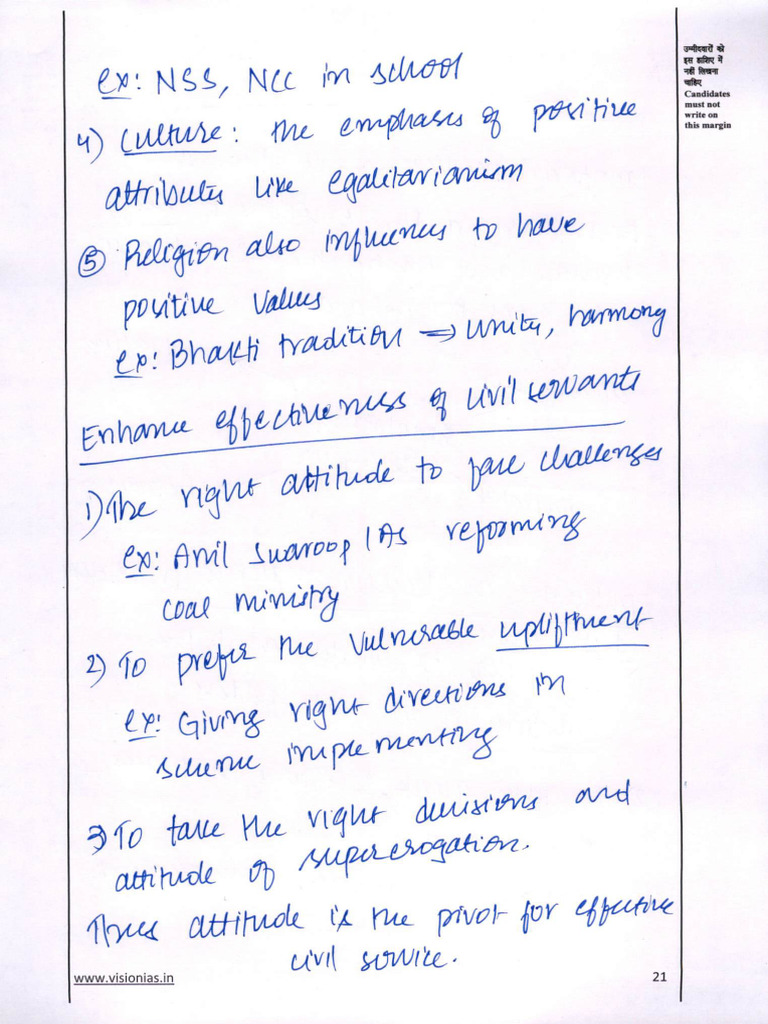 ex: NSS, NCC in school
4) Culture: the emphases of positive
attributes like egalitarianism
⑤ Religion also influences to have
positive values
ex: Bhakti tradition → unity, harmony
Enhance effectiveness of civil servants
1) The right attitude to face challenges
ex: Anil Swaroop IAS reforming
coal ministry
2) To prefer the vulnerable upliftment
ex: Giving right directions in
scheme implementing
3) To take the right decisions and
attitude of supererogation.
Thus attitude is the pivot for effective
civil service.
उम्मीदवारों को
इस हाशिए में
नहीं लिखना
चाहिए
Candidates
must not
write on
this margin
www.visionias.in
21